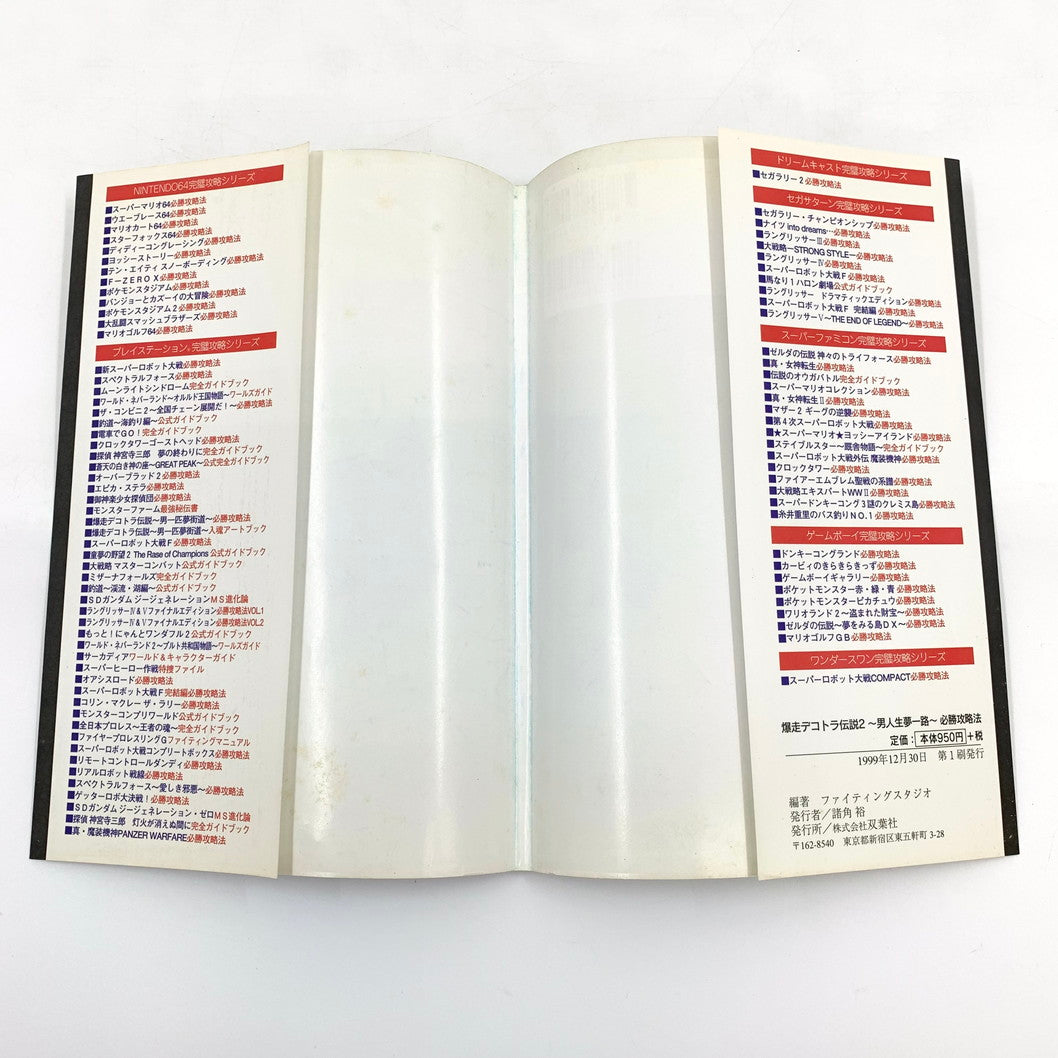 NINTENDO64完璧攻略シリーズ
■スーパーマリオ64必勝攻略法
■ウエーブレース64必勝攻略法
■マリオカート64必勝攻略法
■スターフォックス64必勝攻略法
■ディディーコングレーシング必勝攻略法
■ヨッシーストーリー必勝攻略法
■テン・エイティ スノーボーディング必勝攻略法
■F－ZERO X必勝攻略法
■ポケモンスタジアム必勝攻略法
■バンジョーとカズーイの大冒険必勝攻略法
■ポケモンスタジアム2必勝攻略法
■大乱闘スマッシュブラザーズ必勝攻略法
■マリオゴルフ64必勝攻略法
プレイステーション®完璧攻略シリーズ
■新スーパーロボット大戦必勝攻略法
■スペクトラルフォース必勝攻略法
■ムーンライトシンドローム完全ガイドブック
■ワールド・ネバーランド～オルルド王国物語～ワールズガイド
■ザ・コンビニ2～全国チェーン展開だ！～必勝攻略法
■釣道～海釣り編～公式ガイドブック
■電車でGO！完全ガイドブック
■クロックタワーゴーストヘッド必勝攻略法
■探偵 神宮寺三郎 夢の終わりに完全ガイドブック
■蒼天の白き神の座～GREAT PEAK～公式完全ガイドブック
■オーバーブラッド2必勝攻略法
■エピカ・ステラ必勝攻略法
■御神楽少女探偵団必勝攻略法
■モンスターファーム最強秘伝書
■爆走デコトラ伝説～男一匹夢街道～必勝攻略法
■爆走デコトラ伝説～男一匹夢街道～入魂アートブック
■スーパーロボット大戦F必勝攻略法
■童夢の野望2 The Rase of Champions 公式ガイドブック
■大戦略 マスターコンバット公式ガイドブック
■ミザーナフォールズ完全ガイドブック
■釣道～渓流・湖編～公式ガイドブック
■SDガンダム ジージェネレーションMS進化論
■ラングリッサーⅣ&Ⅴファイナルエディション必勝攻略法VOL.1
■ラングリッサーⅣ&Ⅴファイナルエディション必勝攻略法VOL.2
■もっと！にゃんとワンダフル2公式ガイドブック
■ワールド・ネバーランド2～プルト共和国物語～ワールズガイド
■サーカディアワールド&キャラクターガイド
■スーパーヒーロー作戦特捜ファイル
■オアシスロード必勝攻略法
■スーパーロボット大戦F 完結編必勝攻略法
■コリン・マクレー ザ・ラリー必勝攻略法
■モンスターコンプリワールド公式ガイドブック
■全日本プロレス～王者の魂～完全ガイドブック
■ファイヤープロレスリングGファイティングマニュアル
■スーパーロボット大戦コンプリートボックス必勝攻略法
■リモートコントロールダンディ必勝攻略法
■リアルロボット戦線必勝攻略法
■スペクトラルフォース～愛しき邪悪～必勝攻略法
■ゲッターロボ大決戦！必勝攻略法
■SDガンダム ジージェネレーション・ゼロMS進化論
■探偵 神宮寺三郎 灯火が消えぬ間に完全ガイドブック
■真・魔装機神PANZER WARFARE必勝攻略法
ドリームキャスト完璧攻略シリーズ
■セガラリー2必勝攻略法
セガサターン完璧攻略シリーズ
■セガラリー・チャンピオンシップ必勝攻略法
■ナイツ into dreams…必勝攻略法
■ラングリッサーⅢ必勝攻略法
■大戦略～STRONG STYLE～必勝攻略法
■ラングリッサーⅣ必勝攻略法
■スーパーロボット大戦F必勝攻略法
■馬なり1ハロン劇場公式ガイドブック
■ラングリッサー ドラマティックエディション必勝攻略法
■スーパーロボット大戦F 完結編 必勝攻略法
■ラングリッサーⅤ～THE END OF LEGEND～必勝攻略法
スーパーファミコン完璧攻略シリーズ
■ゼルダの伝説 神々のトライフォース必勝攻略法
■真・女神転生必勝攻略法
■伝説のオウガバトル完全ガイドブック
■スーパーマリオコレクション必勝攻略法
■真・女神転生Ⅱ必勝攻略法
■マザー2 ギーグの逆襲必勝攻略法
■第4次スーパーロボット大戦必勝攻略法
■★スーパーマリオ★ヨッシーアイランド必勝攻略法
■ステイブルスター～厩舎物語～完全ガイドブック
■スーパーロボット大戦外伝 魔装機神必勝攻略法
■クロックタワー必勝攻略法
■ファイアーエムブレム聖戦の系譜必勝攻略法
■大戦略エキスパートWWⅡ必勝攻略法
■スーパードンキーコング3謎のクレミス島必勝攻略法
■糸井重里のバス釣りNO.1必勝攻略法
ゲームボーイ完璧攻略シリーズ
■ドンキーコングランド必勝攻略法
■カービィのきらきらきっず必勝攻略法
■ゲームボーイギャラリー必勝攻略法
■ポケットモンスター赤・緑・青 必勝攻略法
■ポケットモンスターピカチュウ必勝攻略法
■ワリオランド2～盗まれた財宝～必勝攻略法
■ゼルダの伝説～夢をみる島DX～必勝攻略法
■マリオゴルフGB必勝攻略法
ワンダースワン完璧攻略シリーズ
■スーパーロボット大戦COMPACT必勝攻略法
爆走デコトラ伝説2 ～男人生夢一路～ 必勝攻略法
定価：本体950円＋税
1999年12月30日 第1刷発行
編著 ファイティングスタジオ
発行者／諸角 裕
発行所／株式会社双葉社
〒162-8540 東京都新宿区東五軒町3-28